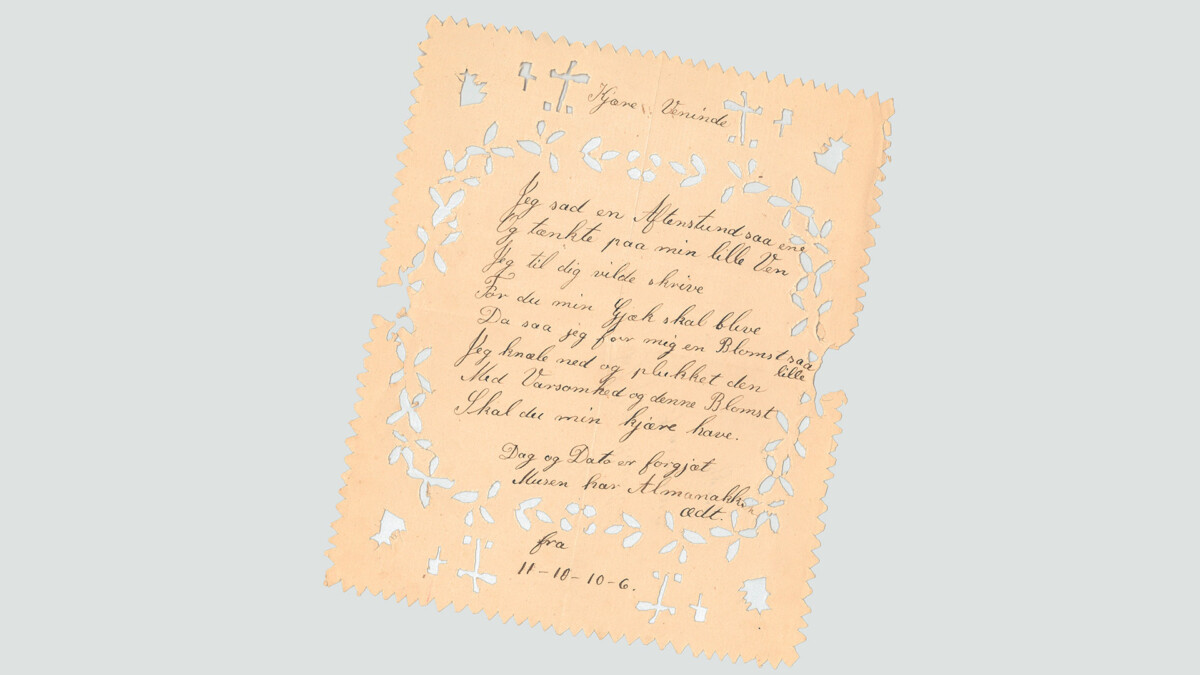 Kjære Veninde
Jeg sad en Aftenstund saa ene
Og tænkte paa min lille Ven
Jeg til dig vilde skrive
For du min Gjæk skal blive
Da saa jeg for mig en Blomst saa
lille
Jeg knæle ned og plukket den
Med Varsomhed og denne Blomst
Skal du min kjære have.
Dag og Dato er forgjæt
Musen har Almanakken
ædt.
fra
11-10-10-6.